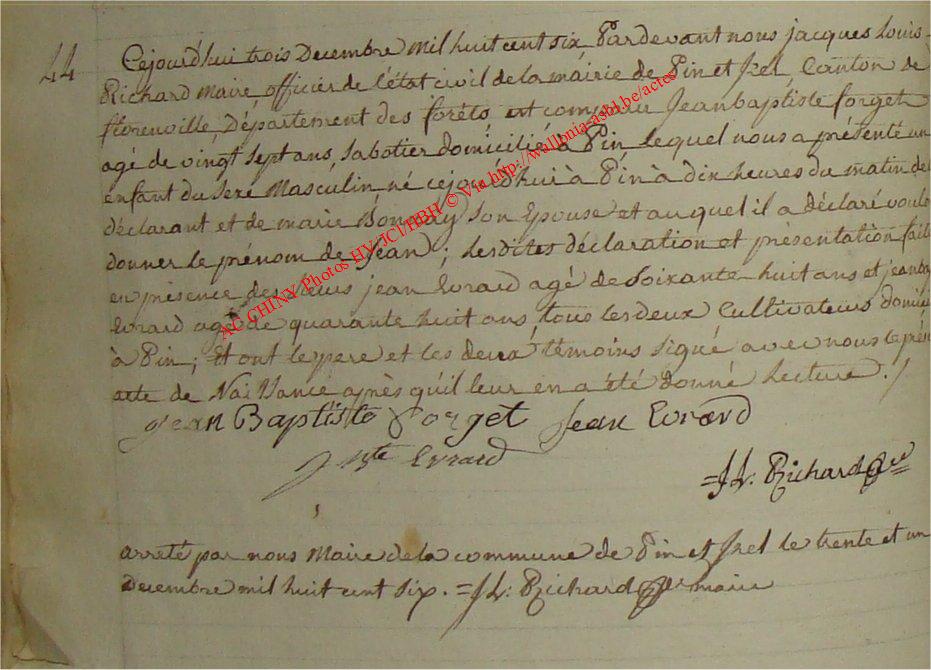 44
Cejourd'hui trois Decembre mil huit cent six Pardevant nous jacques Louis
Richard Maire officier de l'état civil de la mairie de Pin et Izel, Canton de
florenville, Département des forêts est comparu Jeanbaptiste forget
agé de vingt sept ans, sabotier domicilié à Pin Lequel nous a présenté un
enfant du Sexe Masculin né cejourd'hui à Pin à dix heures du matin de
déclarant et de marie son Epouse et auquel il a déclaré voulo
donner le prénom de Jean; Lesdites déclaration et présentation faite
en présence des sieurs jean Evrard agé de soixante huit ans et jeanba
Evrard agé de quarante huit ans, tous les deux Cultivateurs domici
à Pin; Et ont le pere et les deux témoins signé avec nous le pré
acte de Naissance après qu'il leur en a été donné Lecture.
Jean Baptiste Forget Jean Evrard
J Bte Evrard
=JL. Richard
arreté par nous Maire de la commune de Pin et Izel le trente et un
decembre mil huit cent six. =JL. Richard maire
AC CHINY Photos HV/JCT/HBH © Via http://wallonia-asbl.be/actes